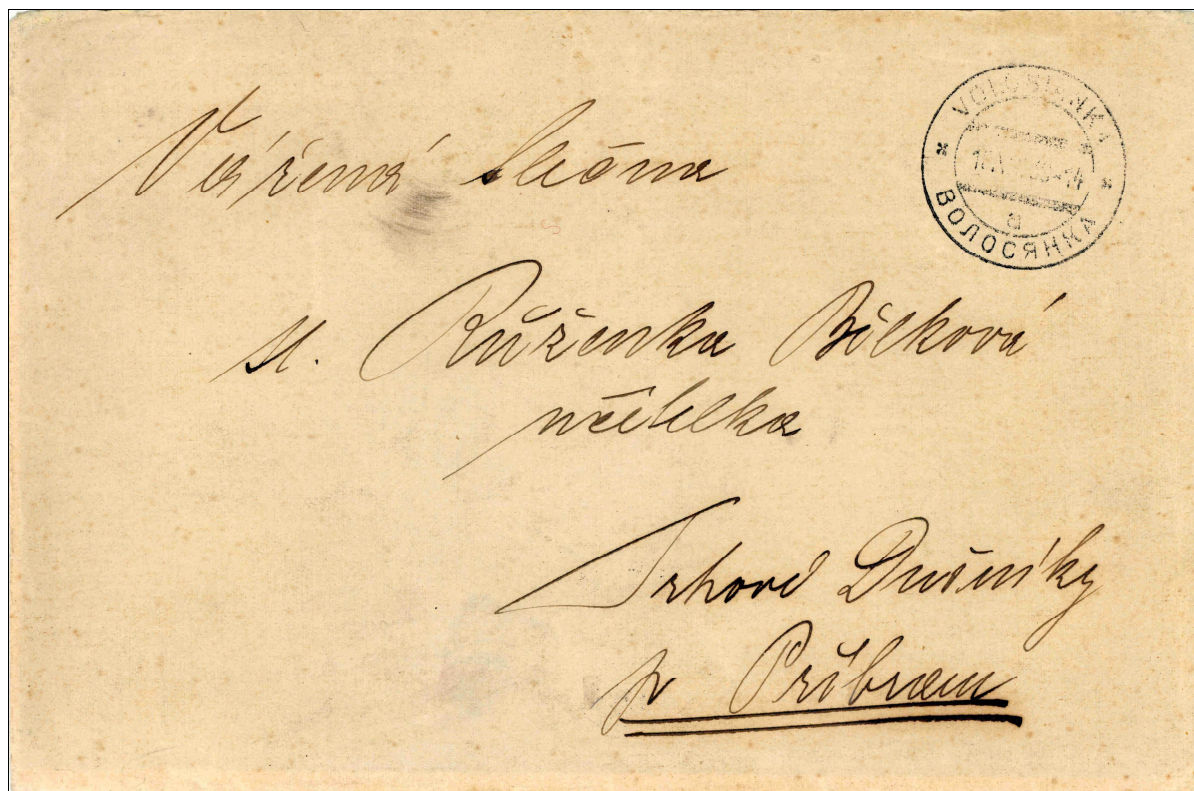 Vážená slečna
VOLOSIANKA
ВОЛОСЯНКА
a
sl. Růženka Bílková
učitelka
Trhové Dušníky
p. Příbram